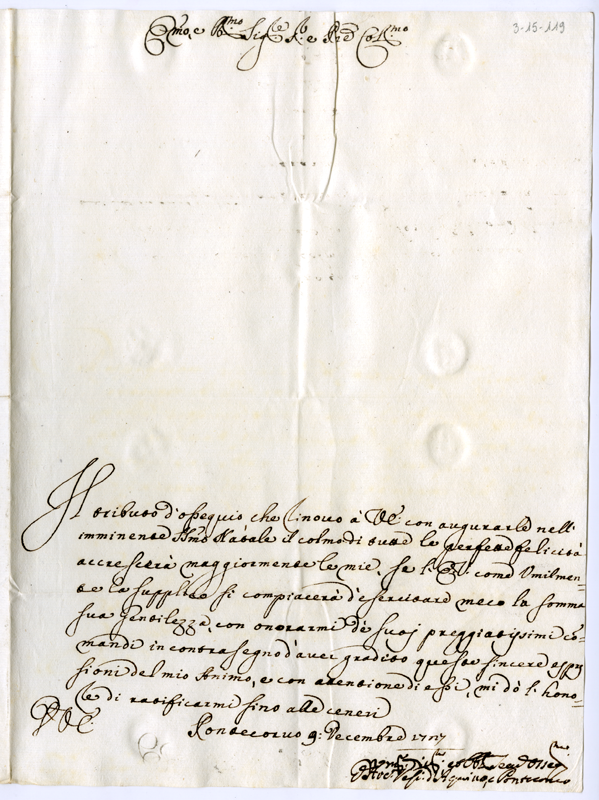 3-15-119
Em.mo, e R.mo Sig.re P.ne Col.mo
Il tributo d'ossequio che rinovo à V.E. con augurarle nell'
imminente S.mo Natale il colmo di tutte le perfette felicità
accrescerà maggiormente le mie, se l'E.V. come umilmen=
te la supplico si compiacerà d'esercitare meco la somma
sua gentilezza, con onorarmi de suoj preggiatissimi co=
mandi in contrasegno d'aver gradito queste sincere espres
sioni del mio Animo, e con attenzione di essi, mi dò l'hono=
re di ratificarmi sino alle ceneri
D V.E.
Pontecorvo 9: Decembre 1727
Vesc. d'Aquino, e Pontecorvo